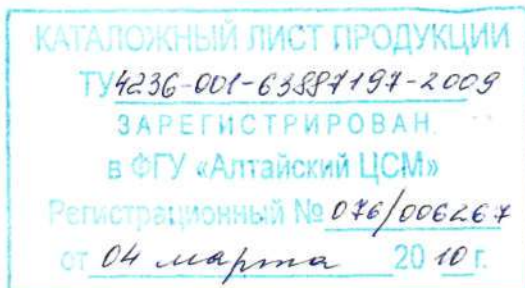 КАТАЛОЖНЫЙ ЛИСТ ПРОДУКЦИИ
ТУ 4236-001-63887197-2009
ЗАРЕГИСТРИРОВАН
в ФГУ «Алтайский ЦСМ»
Регистрационный № 076/006267
от 04 марта 2010 г.